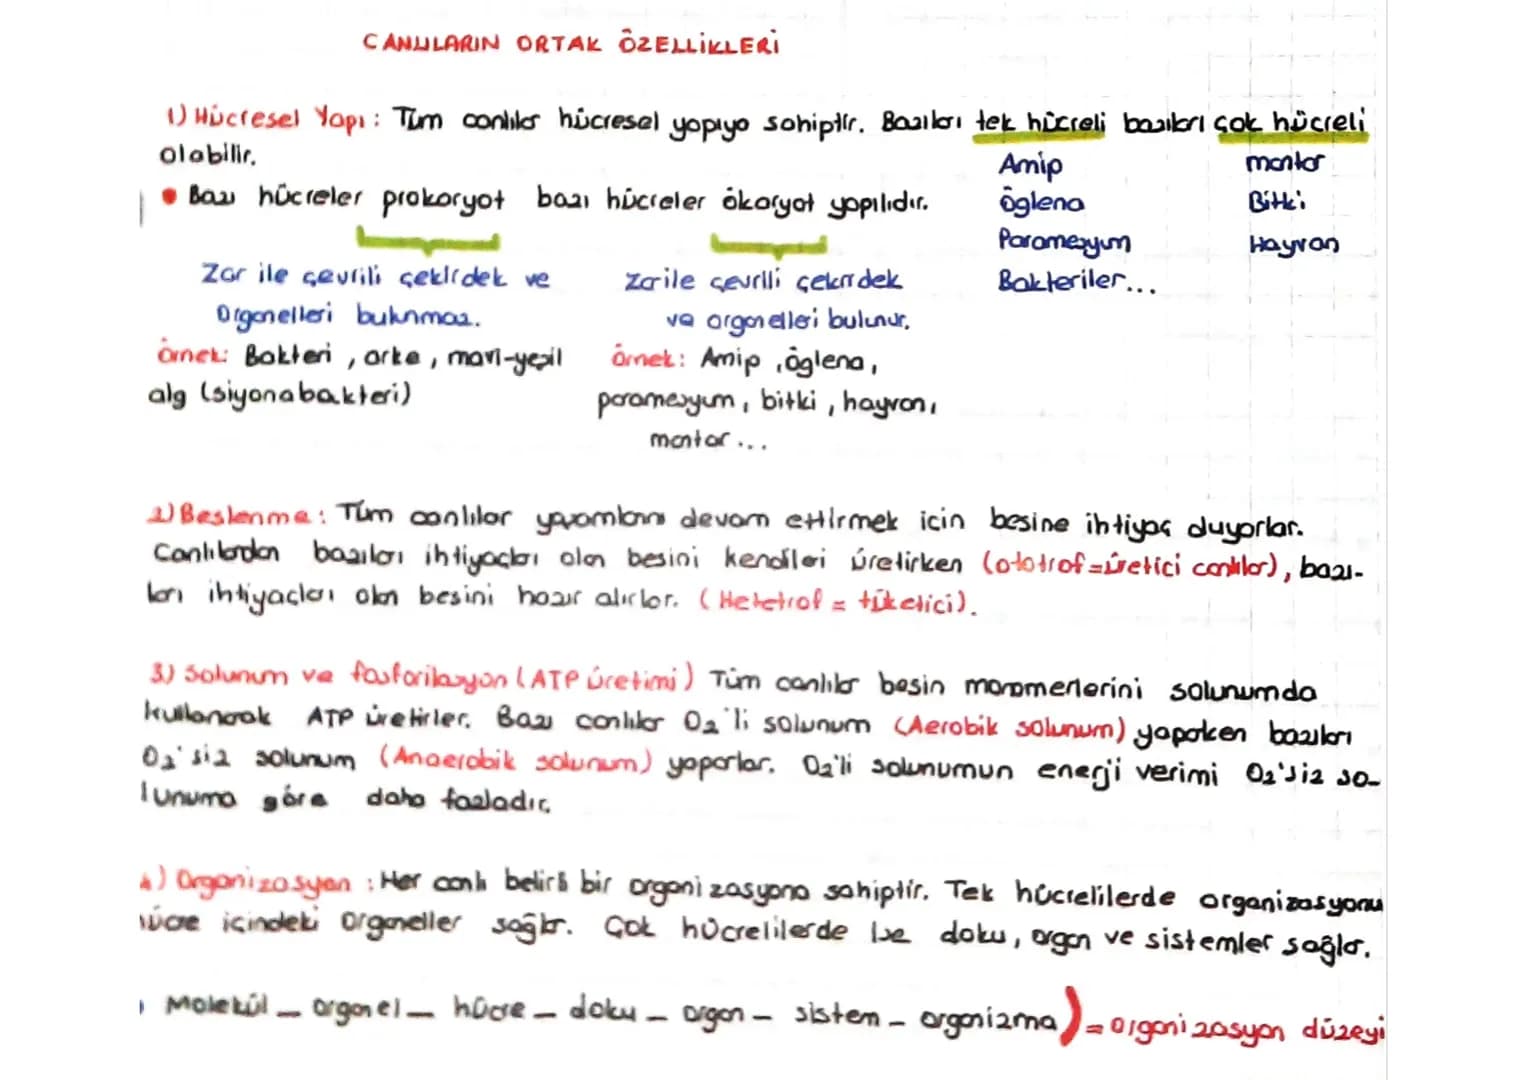 CANLILARIN ORTAK ÖZELLİKLERİ
1) Hücresel Yapı : Tüm canlılar hücresel yapıya sahiptir. Bazıları tek hücreli bazıları çok hücreli
olabilir.
Amip mantar
• Bazı hücreler prokaryot bazı hücreler ökaryot yapılıdır.
öglena Bitki
Paramezyum Hayvan
Zar ile çevrili çekirdek ve
Zar ile çevrili çekirdek
Bakteriler...
Organelleri bulunmaz.
ve organelleri bulunur.
örnek: Bakteri, arke, mavi-yeşil
alg (siyanobakteri)
örnek: Amip, öglena,
paramezyum, bitki, hayvan,
mantar...
2) Beslenme : Tüm canlılar yaşamlarını devam ettirmek icin besine ihtiyaç duyarlar.
Canlılardan bazıları ihtiyaçları olan besini kendileri üretirken (ototrof=üretici canlılar), bazı-
ları ihtiyaçları olan besini hazır alırlar. (Hetetrof = tüketici).
3) Solunum ve fosforilasyon (ATP üretimi) Tüm canlılar besin monomerlerini solunumda
kullanarak ATP üretirler. Bazı canlılar O₂'li solunum (Aerobik solunum) yaparken bazıları
O₂'siz solunum (Anaerobik solunum) yaparlar. O₂'li solunumun enerji verimi O₂'siz so-
lunuma göre daha fazladır.
4) Organizasyon : Her canlı belirli bir organizasyona sahiptir. Tek hücrelilerde organizasyonu
hücre içindeki Organeller sağlar. Çok hücrelilerde ise doku, organ ve sistemler sağlar.
Molekül - organel - hücre - doku - organ - sistem - organizma ) = organizasyon düzeyi